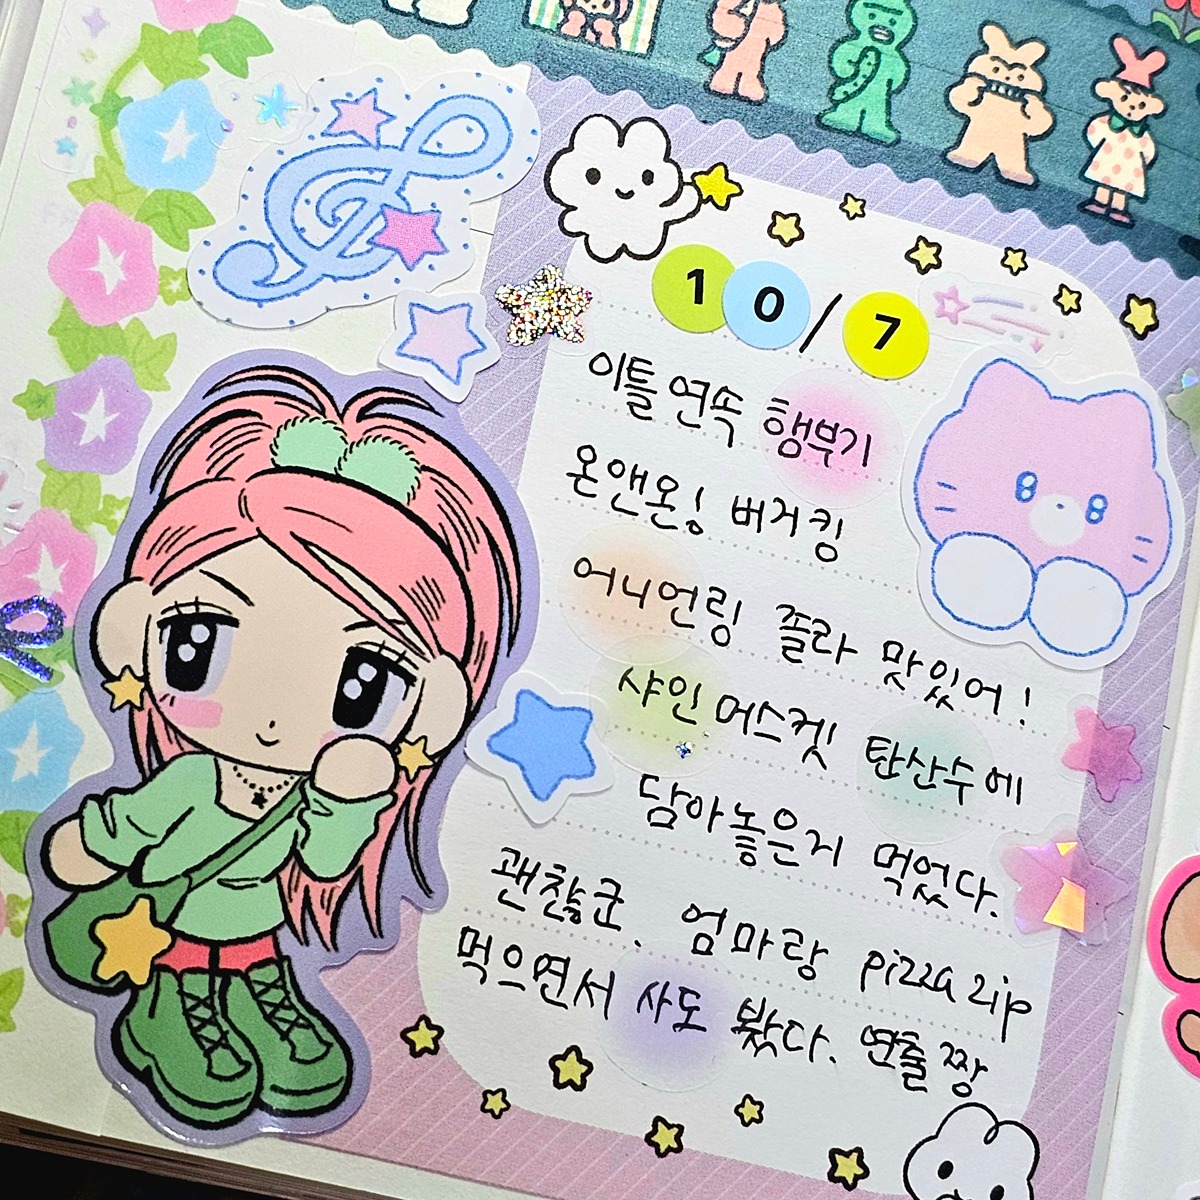 10/7
이틀 연속 햄부기
온앤온싱 버거킹
어니언링 쫄라 맛있어!
샤인머스켓 탄산수에
담아놓은거 먹었다.
괜찮군. 엄마랑 pizza zip
먹으면서 사도 봤다. 연출 짱